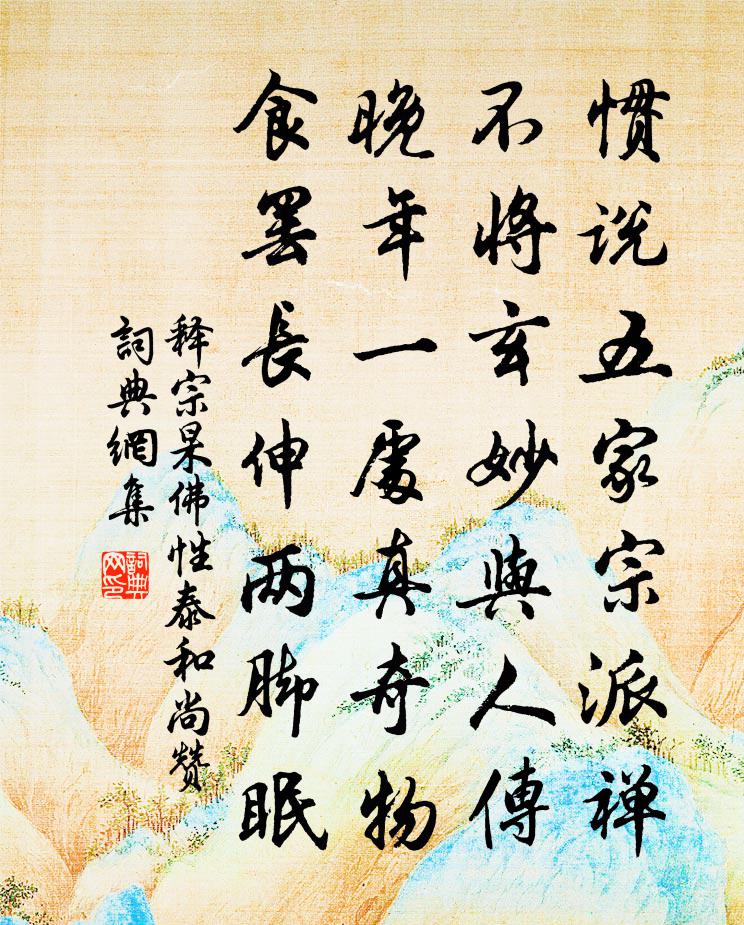 惯说五家宗派禅
不将玄妙與人傳
晚年一處真奇物
食罢長伸两脚眠
释宗杲佛性泰和尚赞
詞典網集
詞典网印